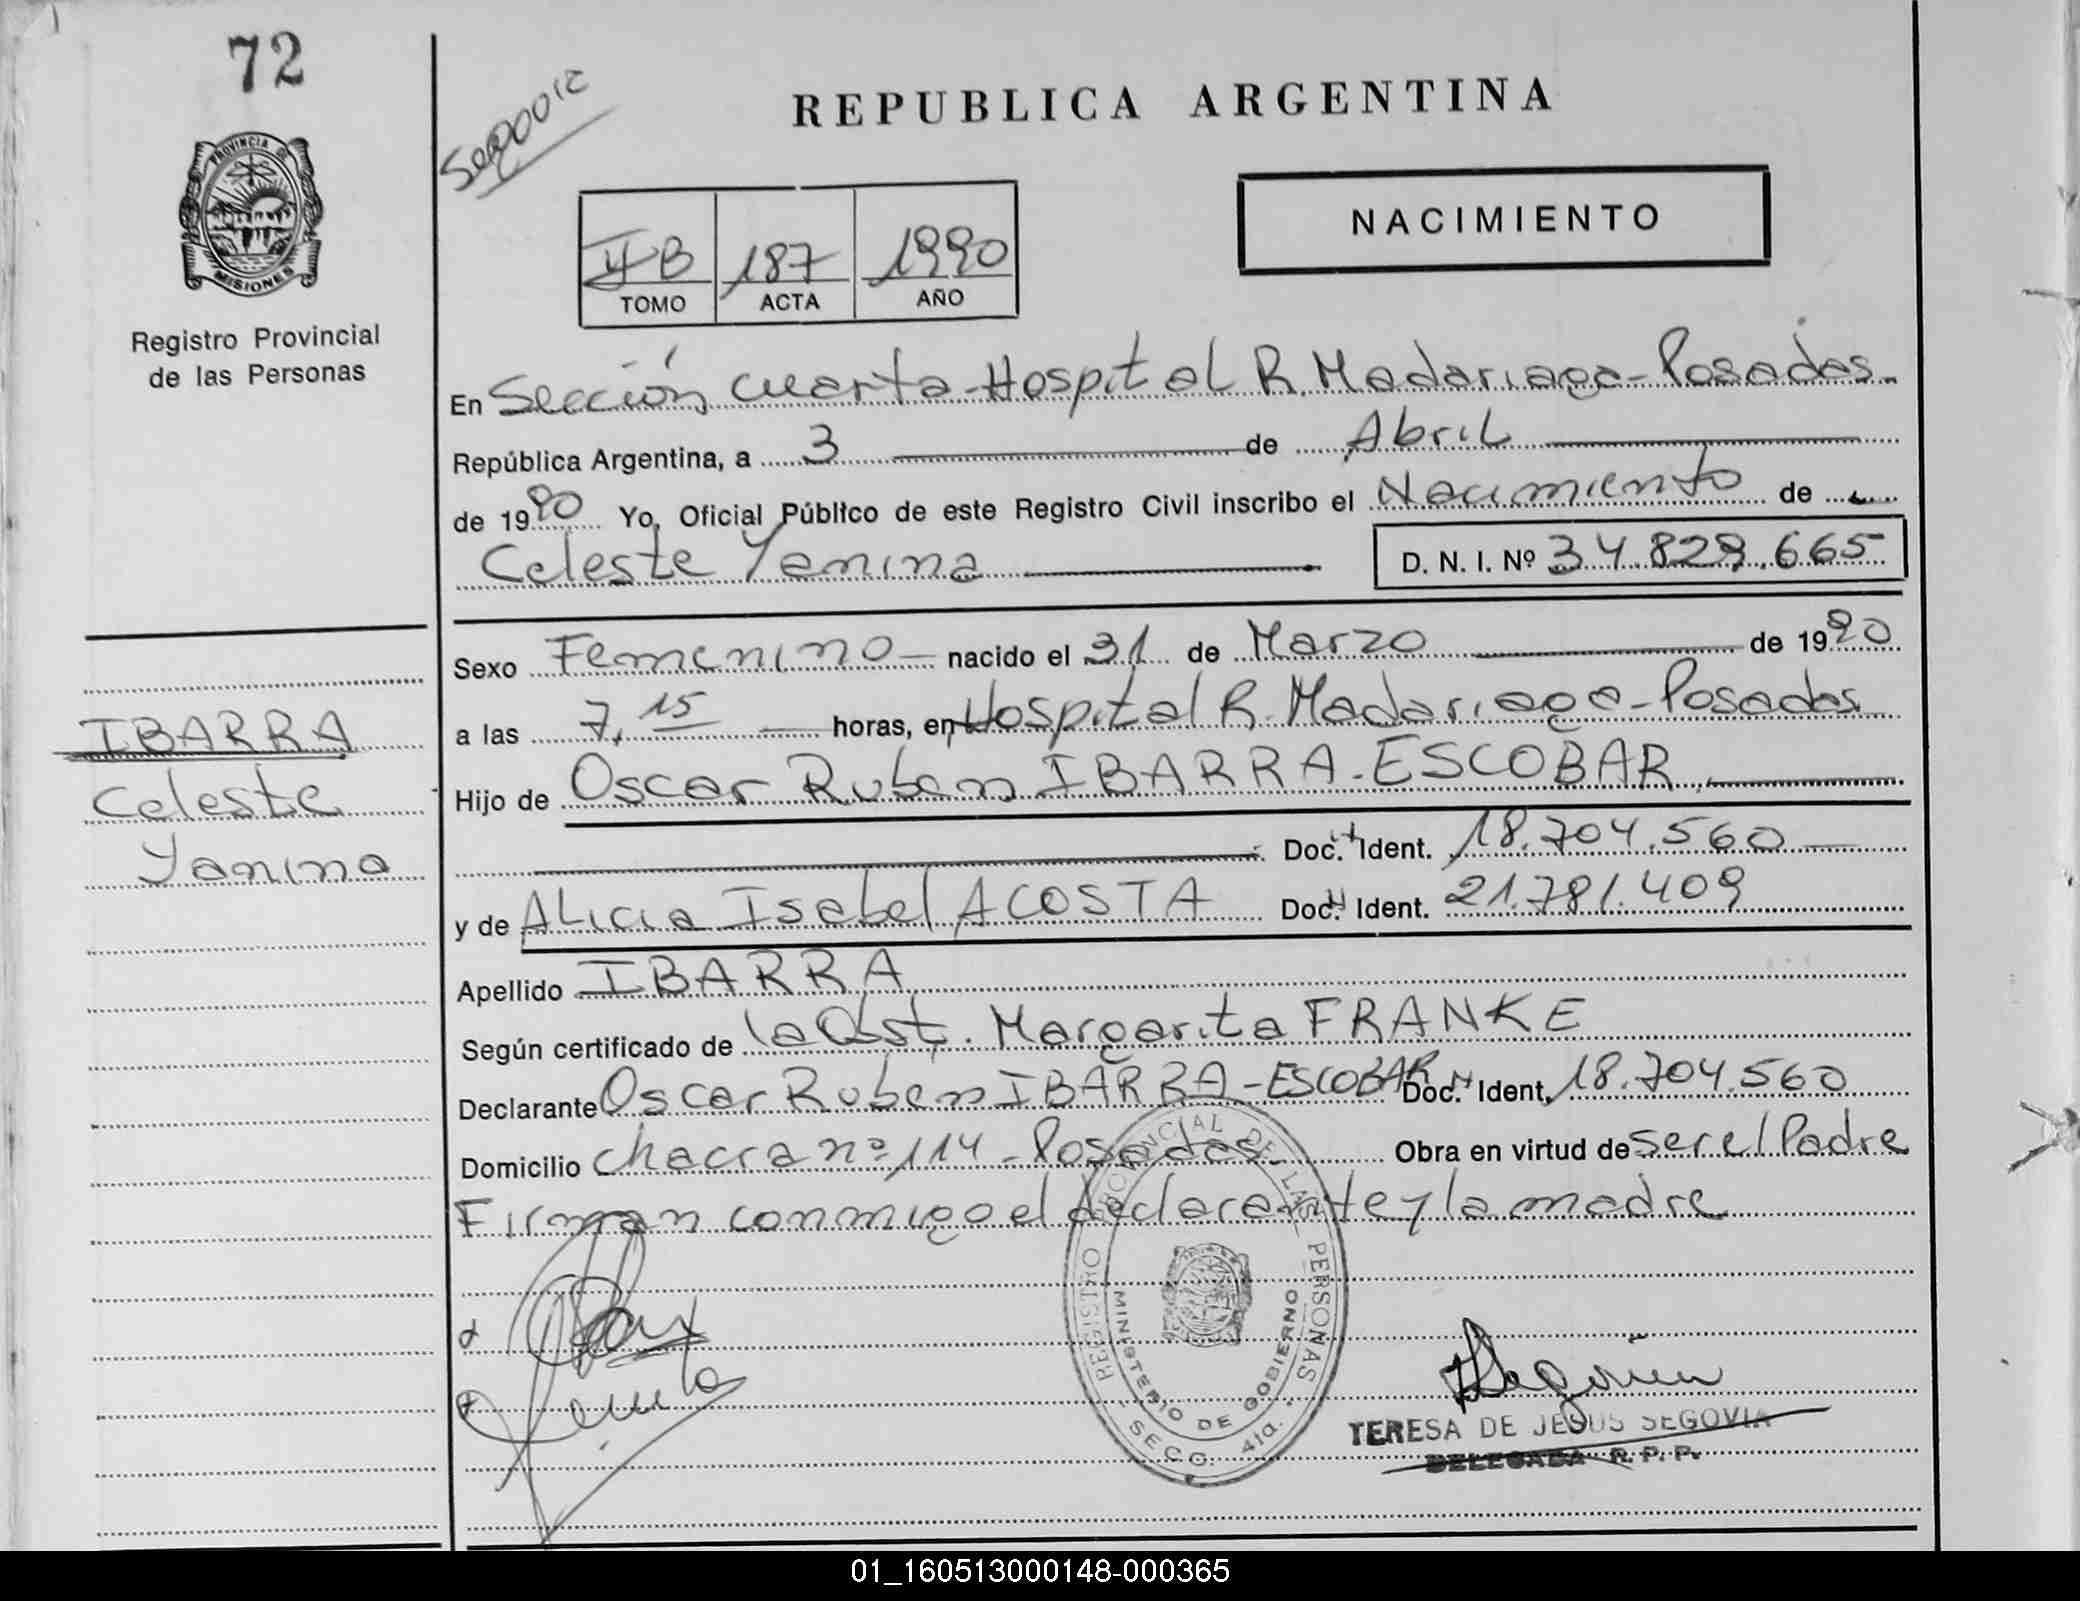 72
PROVINCIA DE
MISIONES
Registro Provincial
de las Personas
REPUBLICA ARGENTINA
NACIMIENTO
II B 187 1990
TOMO ACTA AÑO
En Sección cuarta-Hospital R. Madariaga-Posadas.
República Argentina, a 3 de Abril
de 1990 Yo, Oficial Público de este Registro Civil inscribo el Nacimiento de
Celeste Yanina D. N. I. Nº 34.829.665
Sexo Femenino nacido el 31 de Marzo de 1990
a las 7,15 horas, en Hospital R. Madariaga-Posadas
Hijo de Oscar Ruben IBARRA-ESCOBAR
Doc. Ident. 18.704.560
y de Alicia Isabel ACOSTA Doc. Ident. 21.781.409
Apellido IBARRA
Según certificado de la Obst. Margarita FRANKE
Declarante Oscar Ruben IBARRA-ESCOBAR Doc. Ident. 18.704.560
Domicilio chacra nº 114-Posadas Obra en virtud de ser el Padre
Firman conmigo el declarante y la madre
IBARRA
Celeste
Yanina
REGISTRO PROVINCIAL DE LAS PERSONAS
MINISTERIO DE GOBIERNO
SECC. 4ta.
TERESA DE JESUS SEGOVIA
DELEGADA R. P. P.
01_160513000148-000365